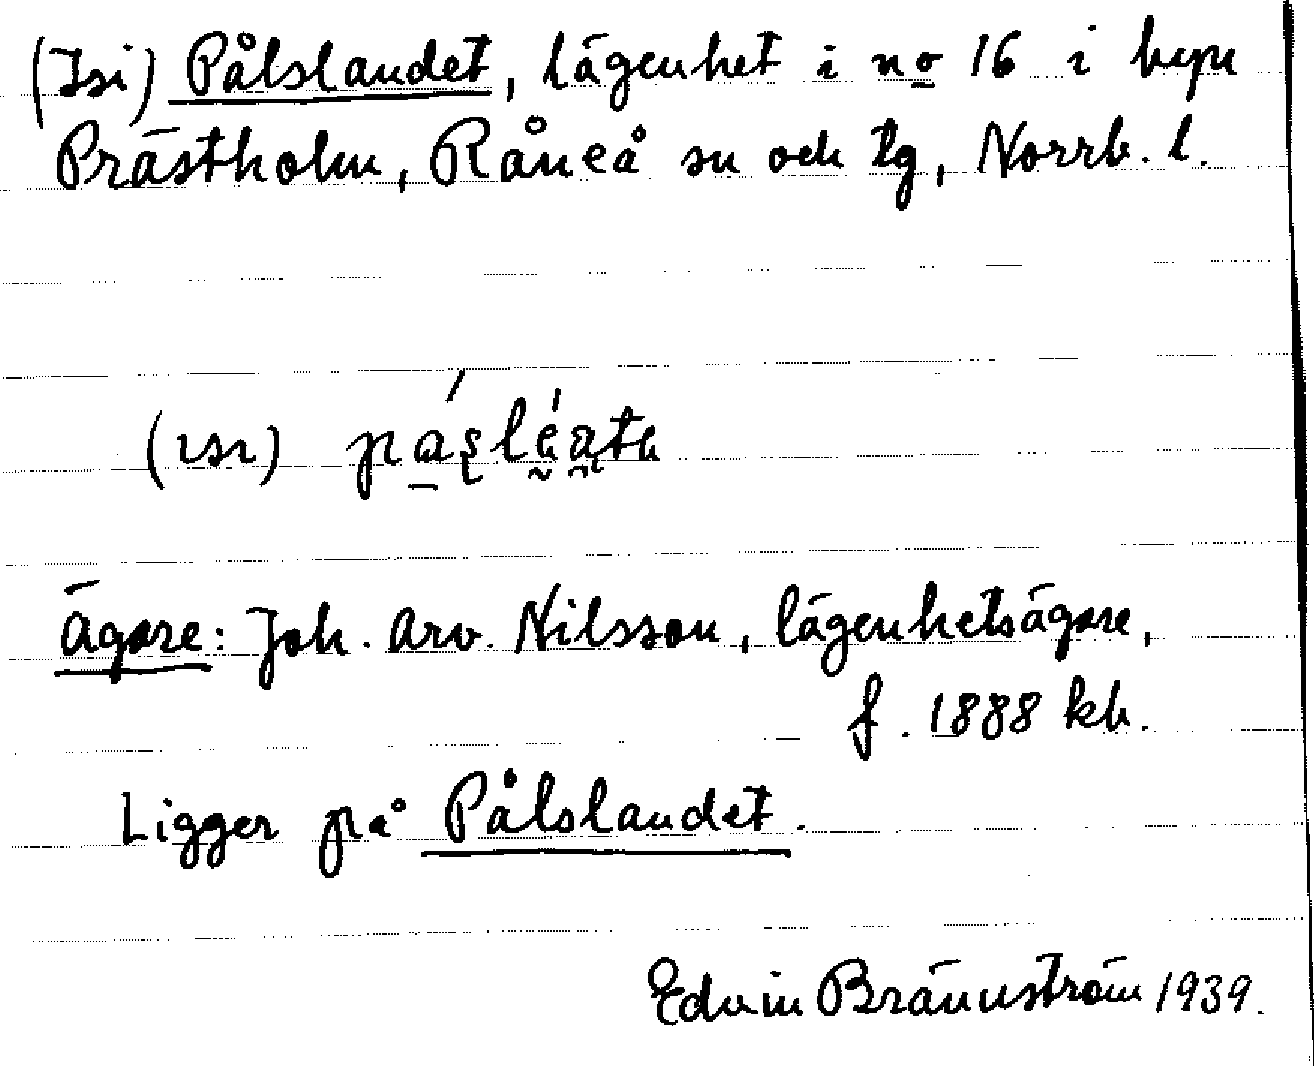 (Isi) Pålslandet, lägenhet i no 16 i byn
Prästholm, Råneå sn och tg, Norrb. l.
(ısı)
Ägare: Joh. Arv. Nilsson, lägenhetsägare,
f. 1888 kb.
Ligger på Pålslandet.
Edvin Brännström 1939.